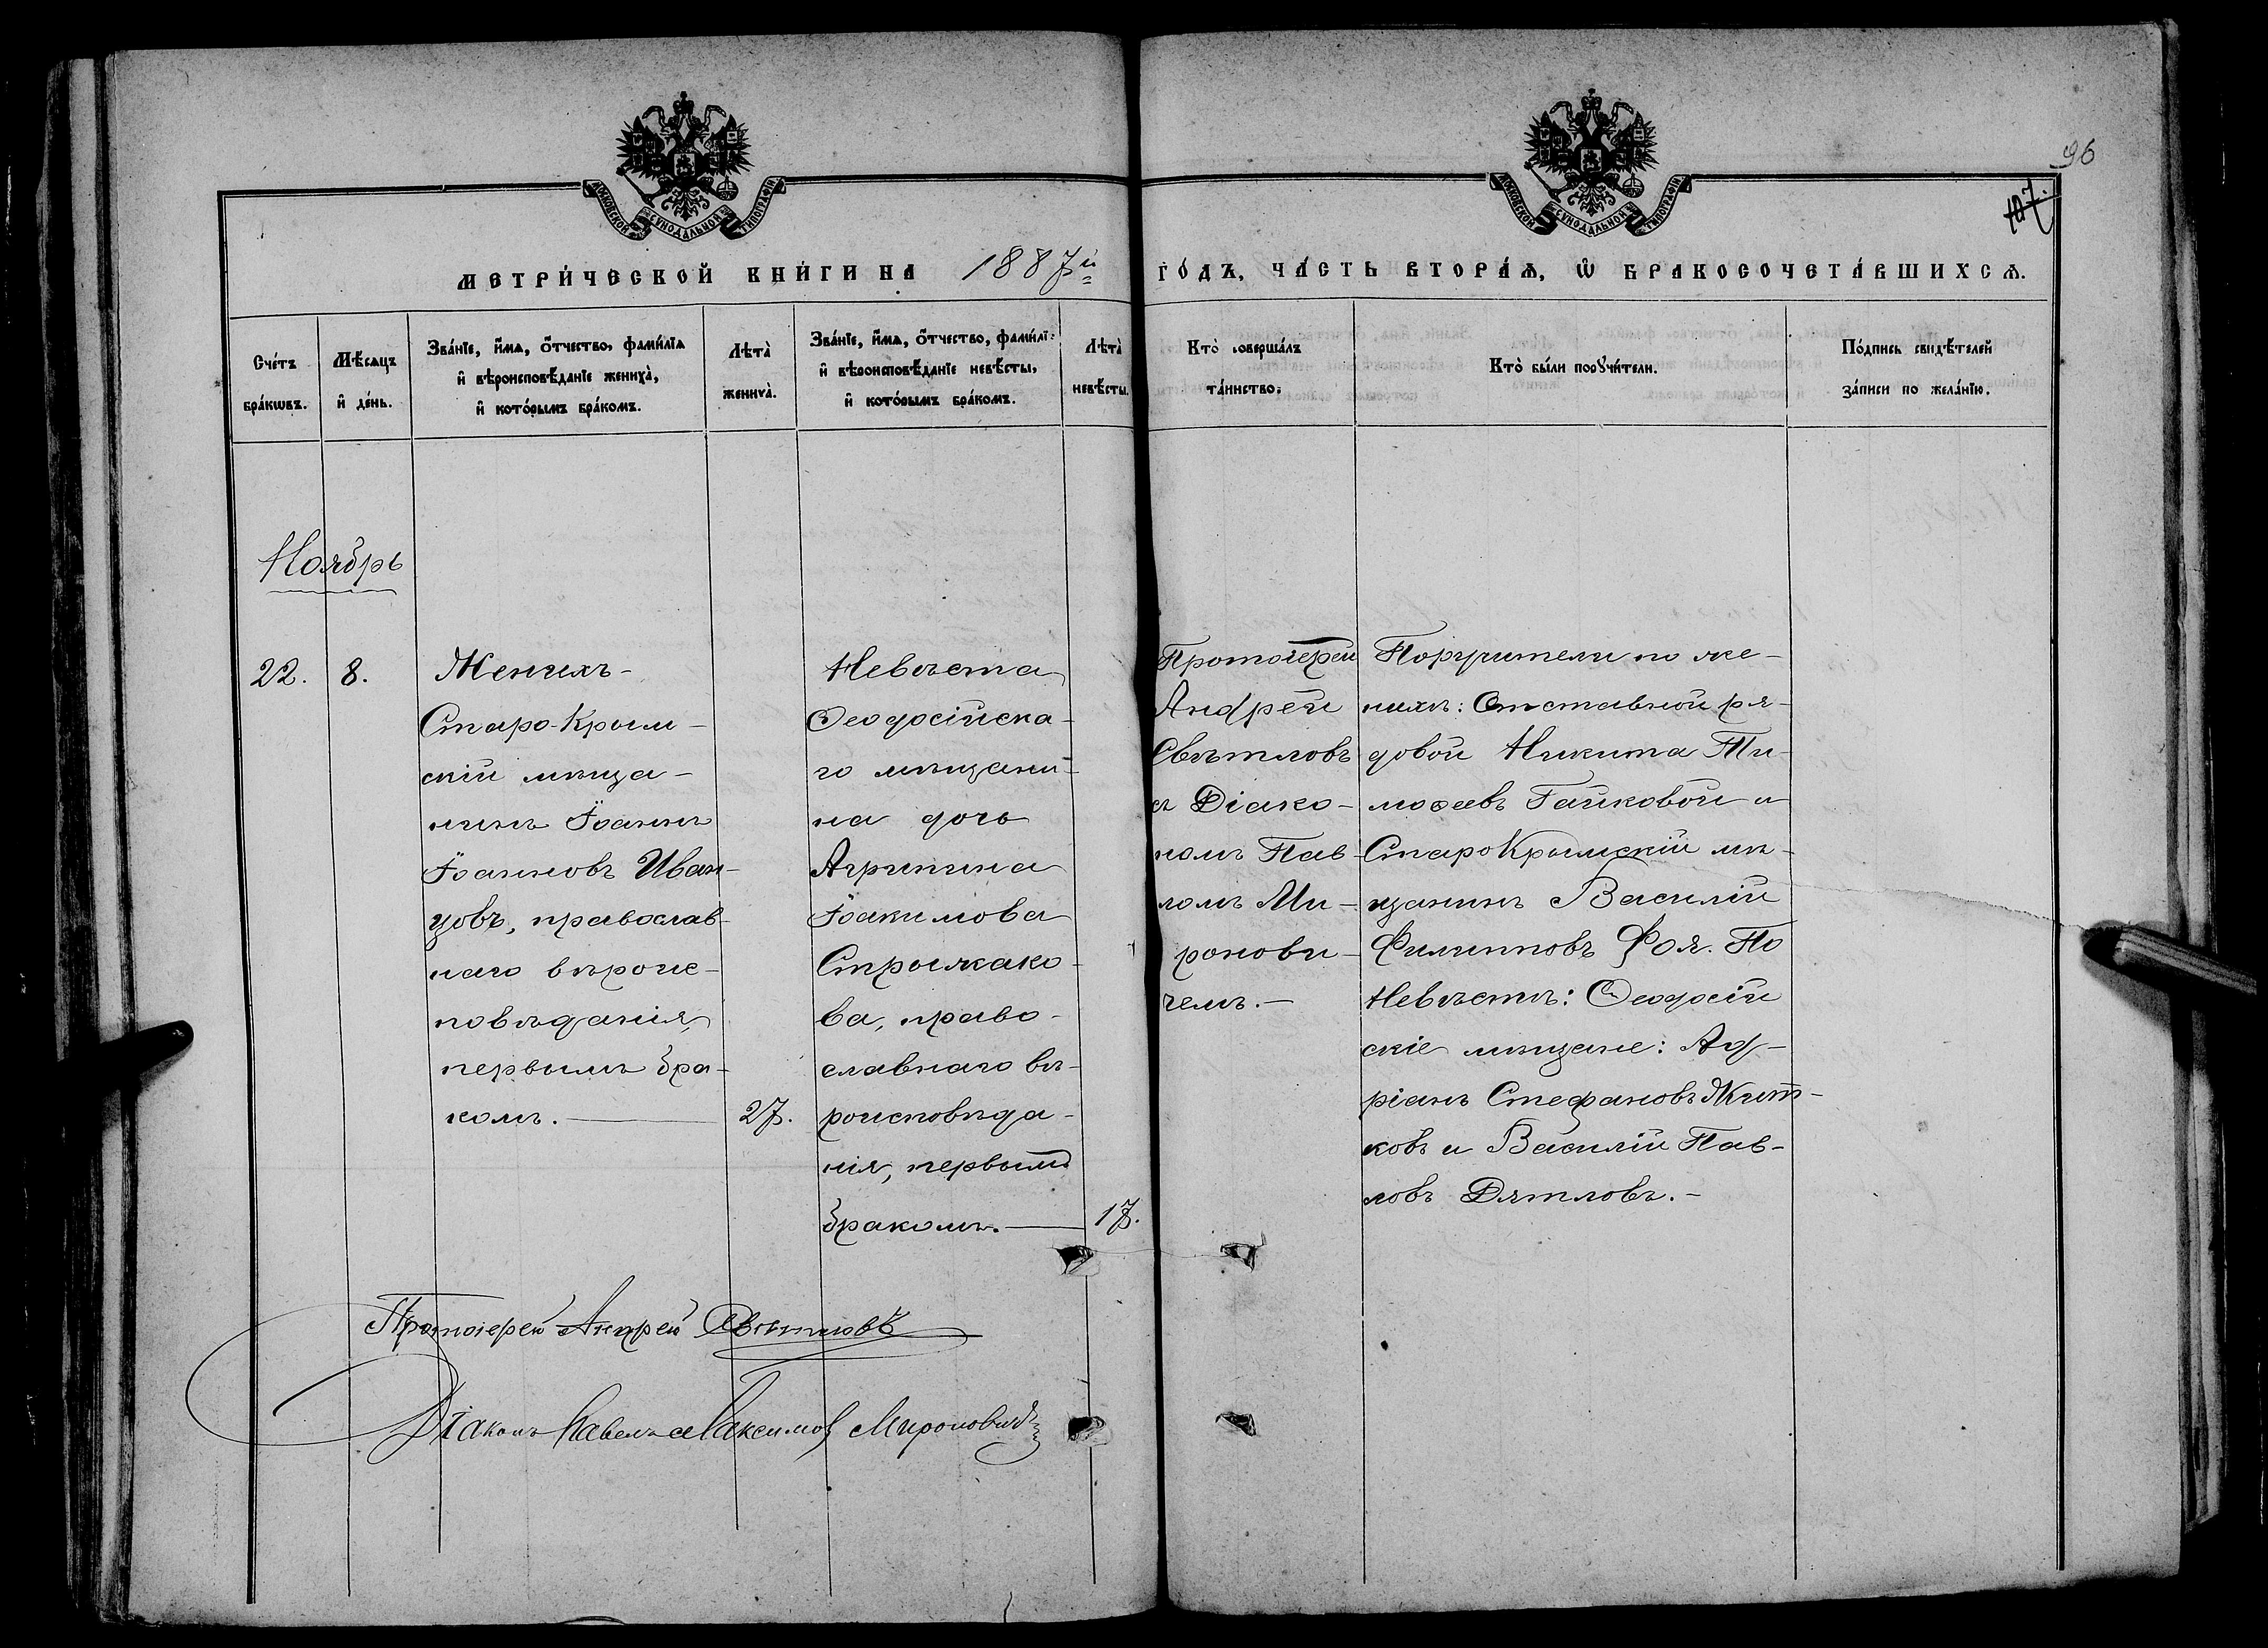 96
107.
МОСКОВСКОЙ СѴНОДАЛЬНОЙ ТИПОГРАФІИ
МОСКОВСКОЙ СѴНОДАЛЬНОЙ ТИПОГРАФІИ
МЕТРИ́ЧЕСКОЙ КНИ́ГИ НА 1887й
ГО́ДЪ, ЧА́СТЬ ВТОРА́Ѧ, Ѡ҆ БРАКОСОЧЕТА́ВШИХСѦ.
Сче́тъ
бра́кѡвъ.
Мѣ́сѧцъ
и҆ де́нь.
Зва́нїе, и҆́мѧ, ѻ҆́тчество, фами́лїѧ
и҆ вѣроисповѣ́данїе жениха̀,
и҆ кото́рымъ бра́комъ.
Лѣта̀
жениха̀.
Зва́нїе, и҆́мѧ, ѻ҆́тчество, фами́лї:
и҆ вѣроисповѣ́данїе невѣ́сты,
и҆ кото́рымъ бра́комъ.
Лѣта̀
невѣ́сты.
Кто̀ соверша́лъ
та́инство.
Кто̀ бы́ли порꙋчи́тели.
По́дпись свидѣ́телей
за́писи по жела́нїю.
Ноябрь
22.
8.
Женихъ-
Старо-Крым-
скій мѣща-
нинъ Іоаннъ
Іоанновъ Иван-
цовъ, православ-
наго вѣроис-
повѣданія,
первымъ бра-
комъ.
27.
Невѣста
Ѳеодосійска-
го мѣщани-
на дочь
Агрипина
Іоакимова
Стрыжако-
ва, право-
славнаго вѣ-
роисповѣда-
нія, первымъ
бракомъ.
17.
Протоіерей
Андрей
Свѣтловъ
съ Діако-
номъ Пав-
ломъ Ми-
ронови-
чемъ.-
Поручители по же-
нихѣ: Отставной ря-
довой Никита Ти-
моѳеевъ Гайковой и
СтароКрымскій мѣ-
щанинъ Василій
Филипповъ Фоя. По
Невѣстѣ: Ѳеодосій
скіе мѣщане: Ад-
ріанъ Стефановъ Жит-
ковъ и Василій Пав-
ловъ Дятловъ.-
Протоіерей Андрей Свѣтловъ
Діаконъ Павелъ Максимов Мироновичъ